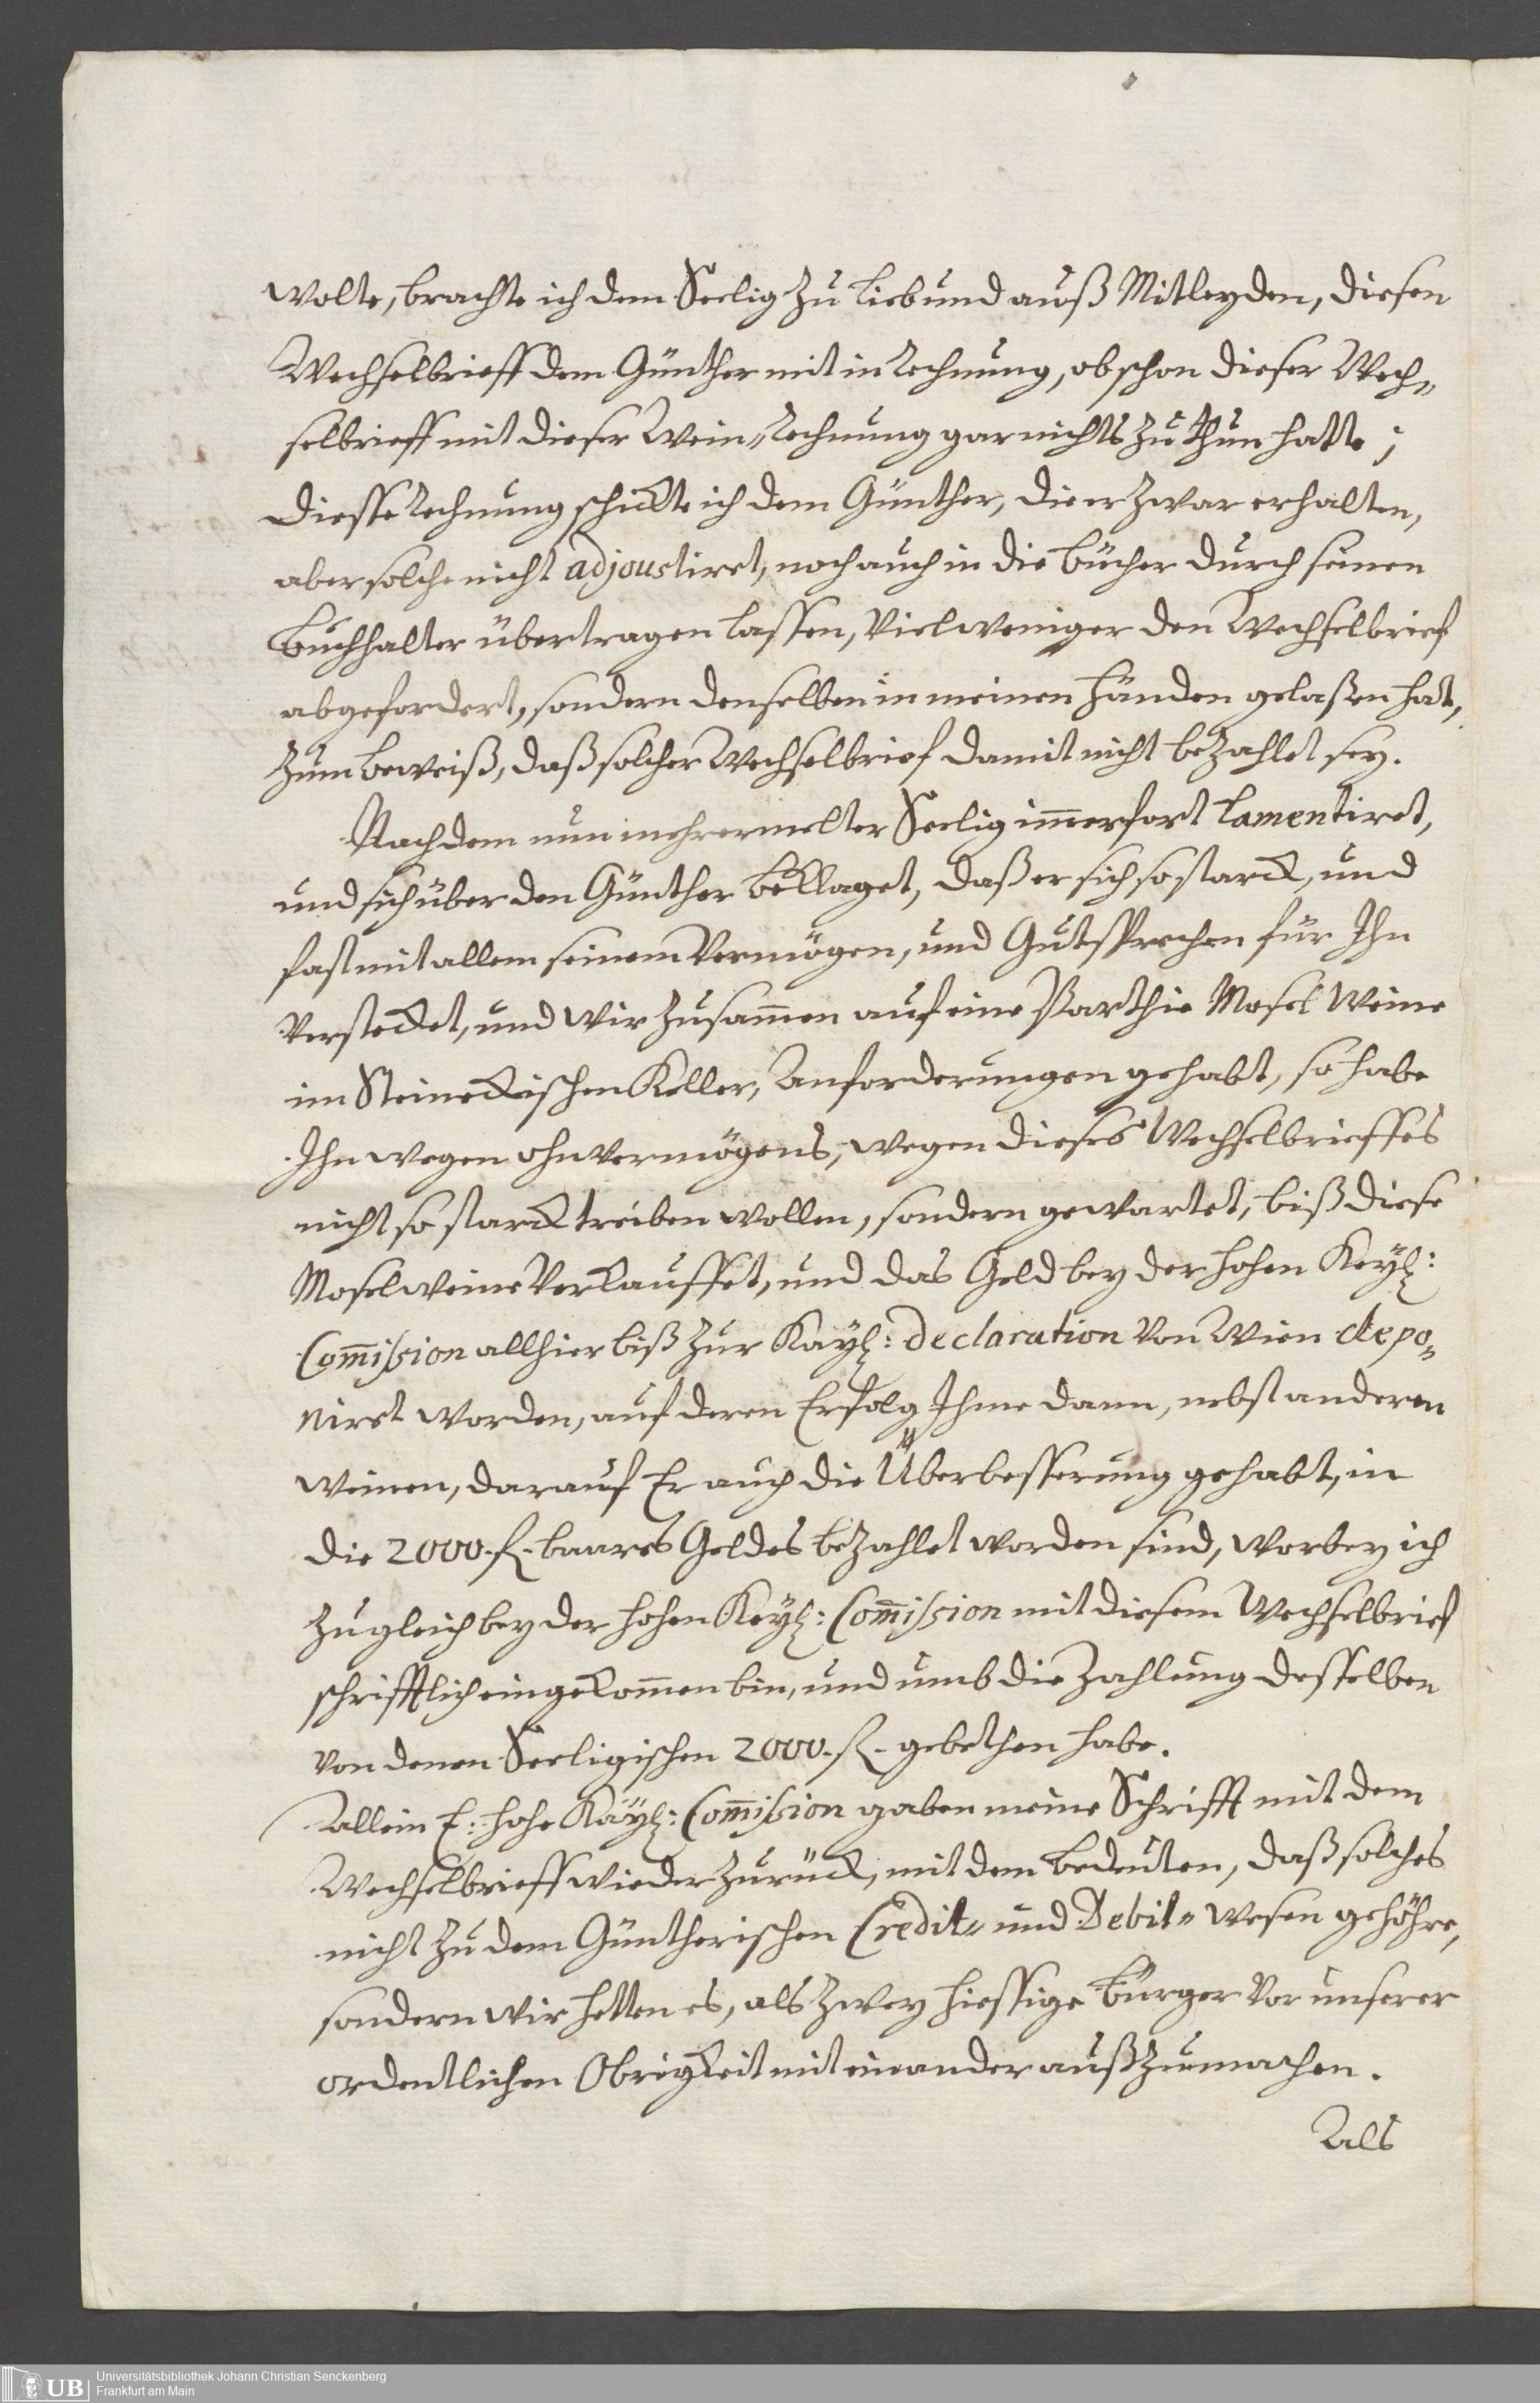 wolte, brachte ich dem Seelig zu Lieb und auß Mitleyden, diesen
Wechselbrieff dem Günther mit in Rechnung, obschon dieser Wech„
selbrieff mit dieser Wein„Rechnung gar nichts zu thun hatte;
Diesse Rechnung schickte ich dem Günther, die er zwar erhalten,
aber solche nicht adjoustiret, noch auch in die bücher durch seinen
buchhalter übertragen lassen, vielweniger den Wechselbrief
abgefordert, sondern denselben in meinen händen gelaßen hat,
zum beweiß, daß solcher Wechselbrief damit nicht bezahlet sey.
Nachdem nun mehrermelter Seelig im̅erfort lamentiret,
und sich über den Günther beklaget, daß er sich so starck, und
fast mit allem seinem Vermögen, und Gutsprechen für Ihn
verstecket, und wir zusam̅en auf eine Parthie Mosel Weine
im Steineckischen Keller, Anforderungen gehabt, so habe
Ihn wegen ohnvermögens, wegen dieses Wechselbrieffes
nicht so starck treiben wollen, sondern gewartet, biß diese
Moselweine verkauffet, und das Geld bey der hohen Keyß:
Com̅ission allhier biß zur Kayß: declaration von Wien depo„
niret worden, auf deren Erfolg Ihme dann, nebst anderen
weinen, darauf Er auch die Überbesserung gehabt, in
die 2000. f. baares Geldes bezahlet worden sind, worbey ich
zugleich bey der hohen Keyß: Com̅ission mit diesem Wechselbrief
schrifftlich eingekom̅en bin, und umb die Zahlung desselben
von denen Seeligischen 2000. f. gebethen habe.
Allein E: hohe Käyß: Com̅ission gaben meine Schrifft mit dem
Wechselbrieff wieder zurück, mit dem bedeuten, daß solches
nicht zu dem Güntherischen Credit„ und Debit„ wesen gehöhre,
sondern wir hetten es, als zwey hiessige bürger vor unserer
ordentlichen Obrigkeit mit einander außzumachen.
Als
UB
Universitätsbibliothek Johann Christian Senckenberg
Frankfurt am Main